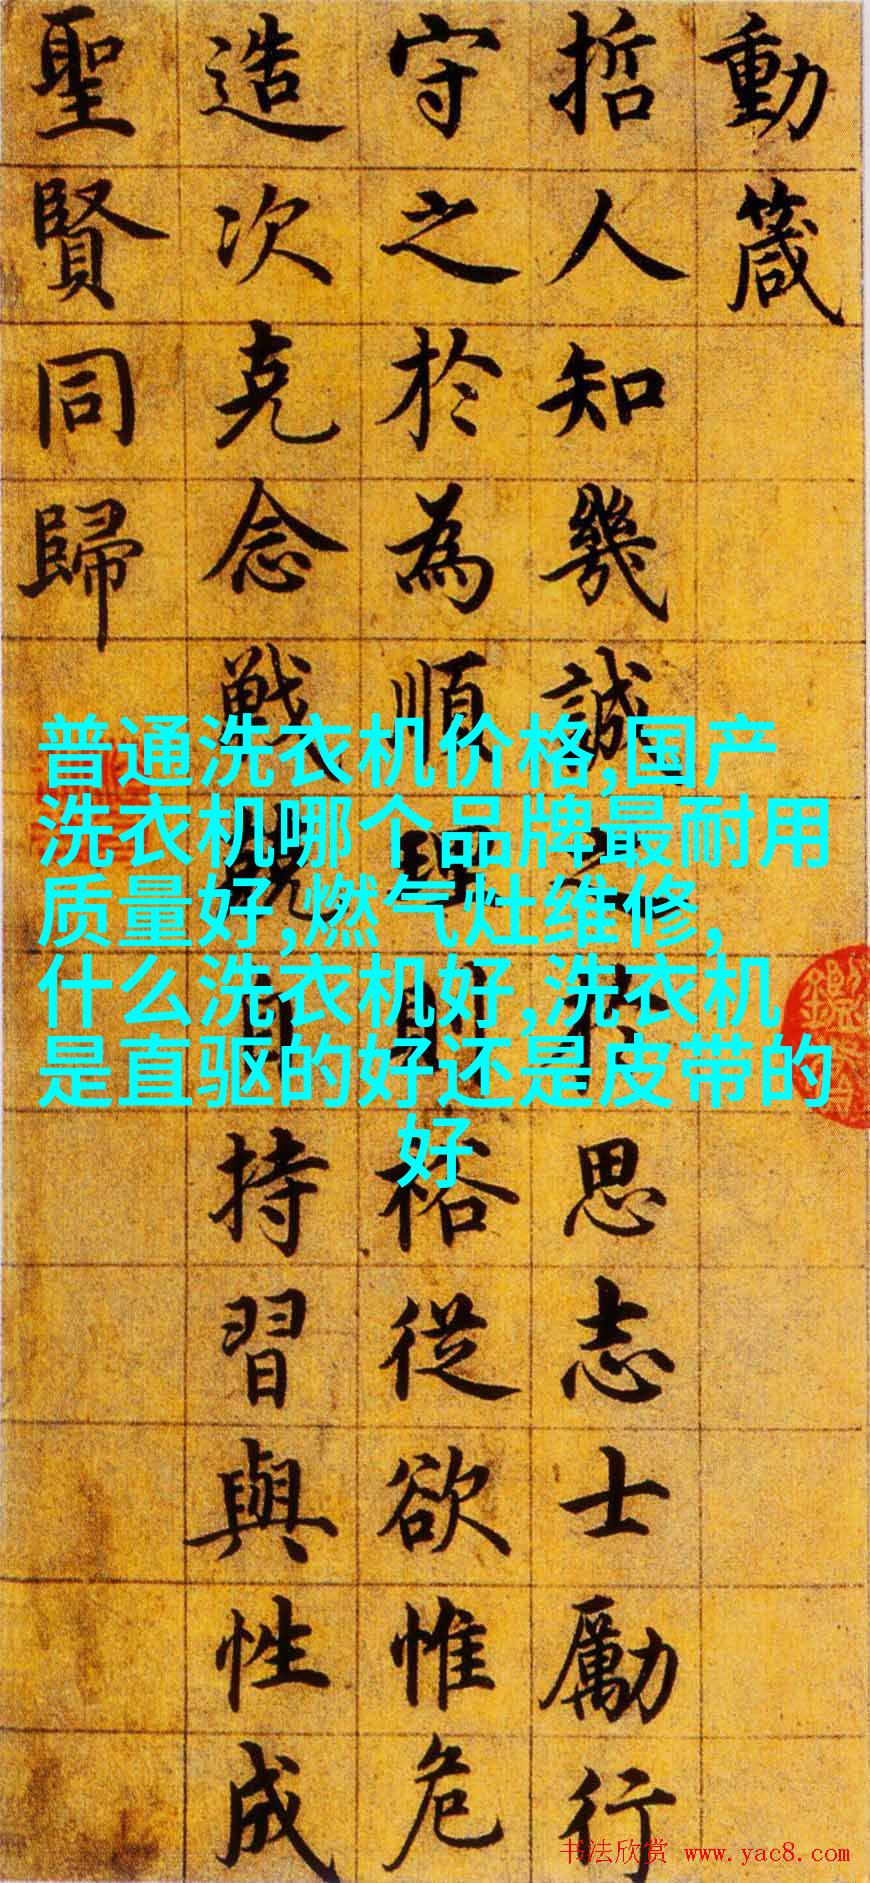 動箴
哲人知幾誠之於思志士勵行
守之於為順理則裕從欲惟危
造次克念戰兢自持習與性成
聖賢同歸
普通洗衣机价格,国产
洗衣机哪个品牌最耐用
质量好,燃气灶维修,
什么洗衣机好,洗衣机
是直驱的好还是皮带的
好
书法欣赏 www.yac8.com